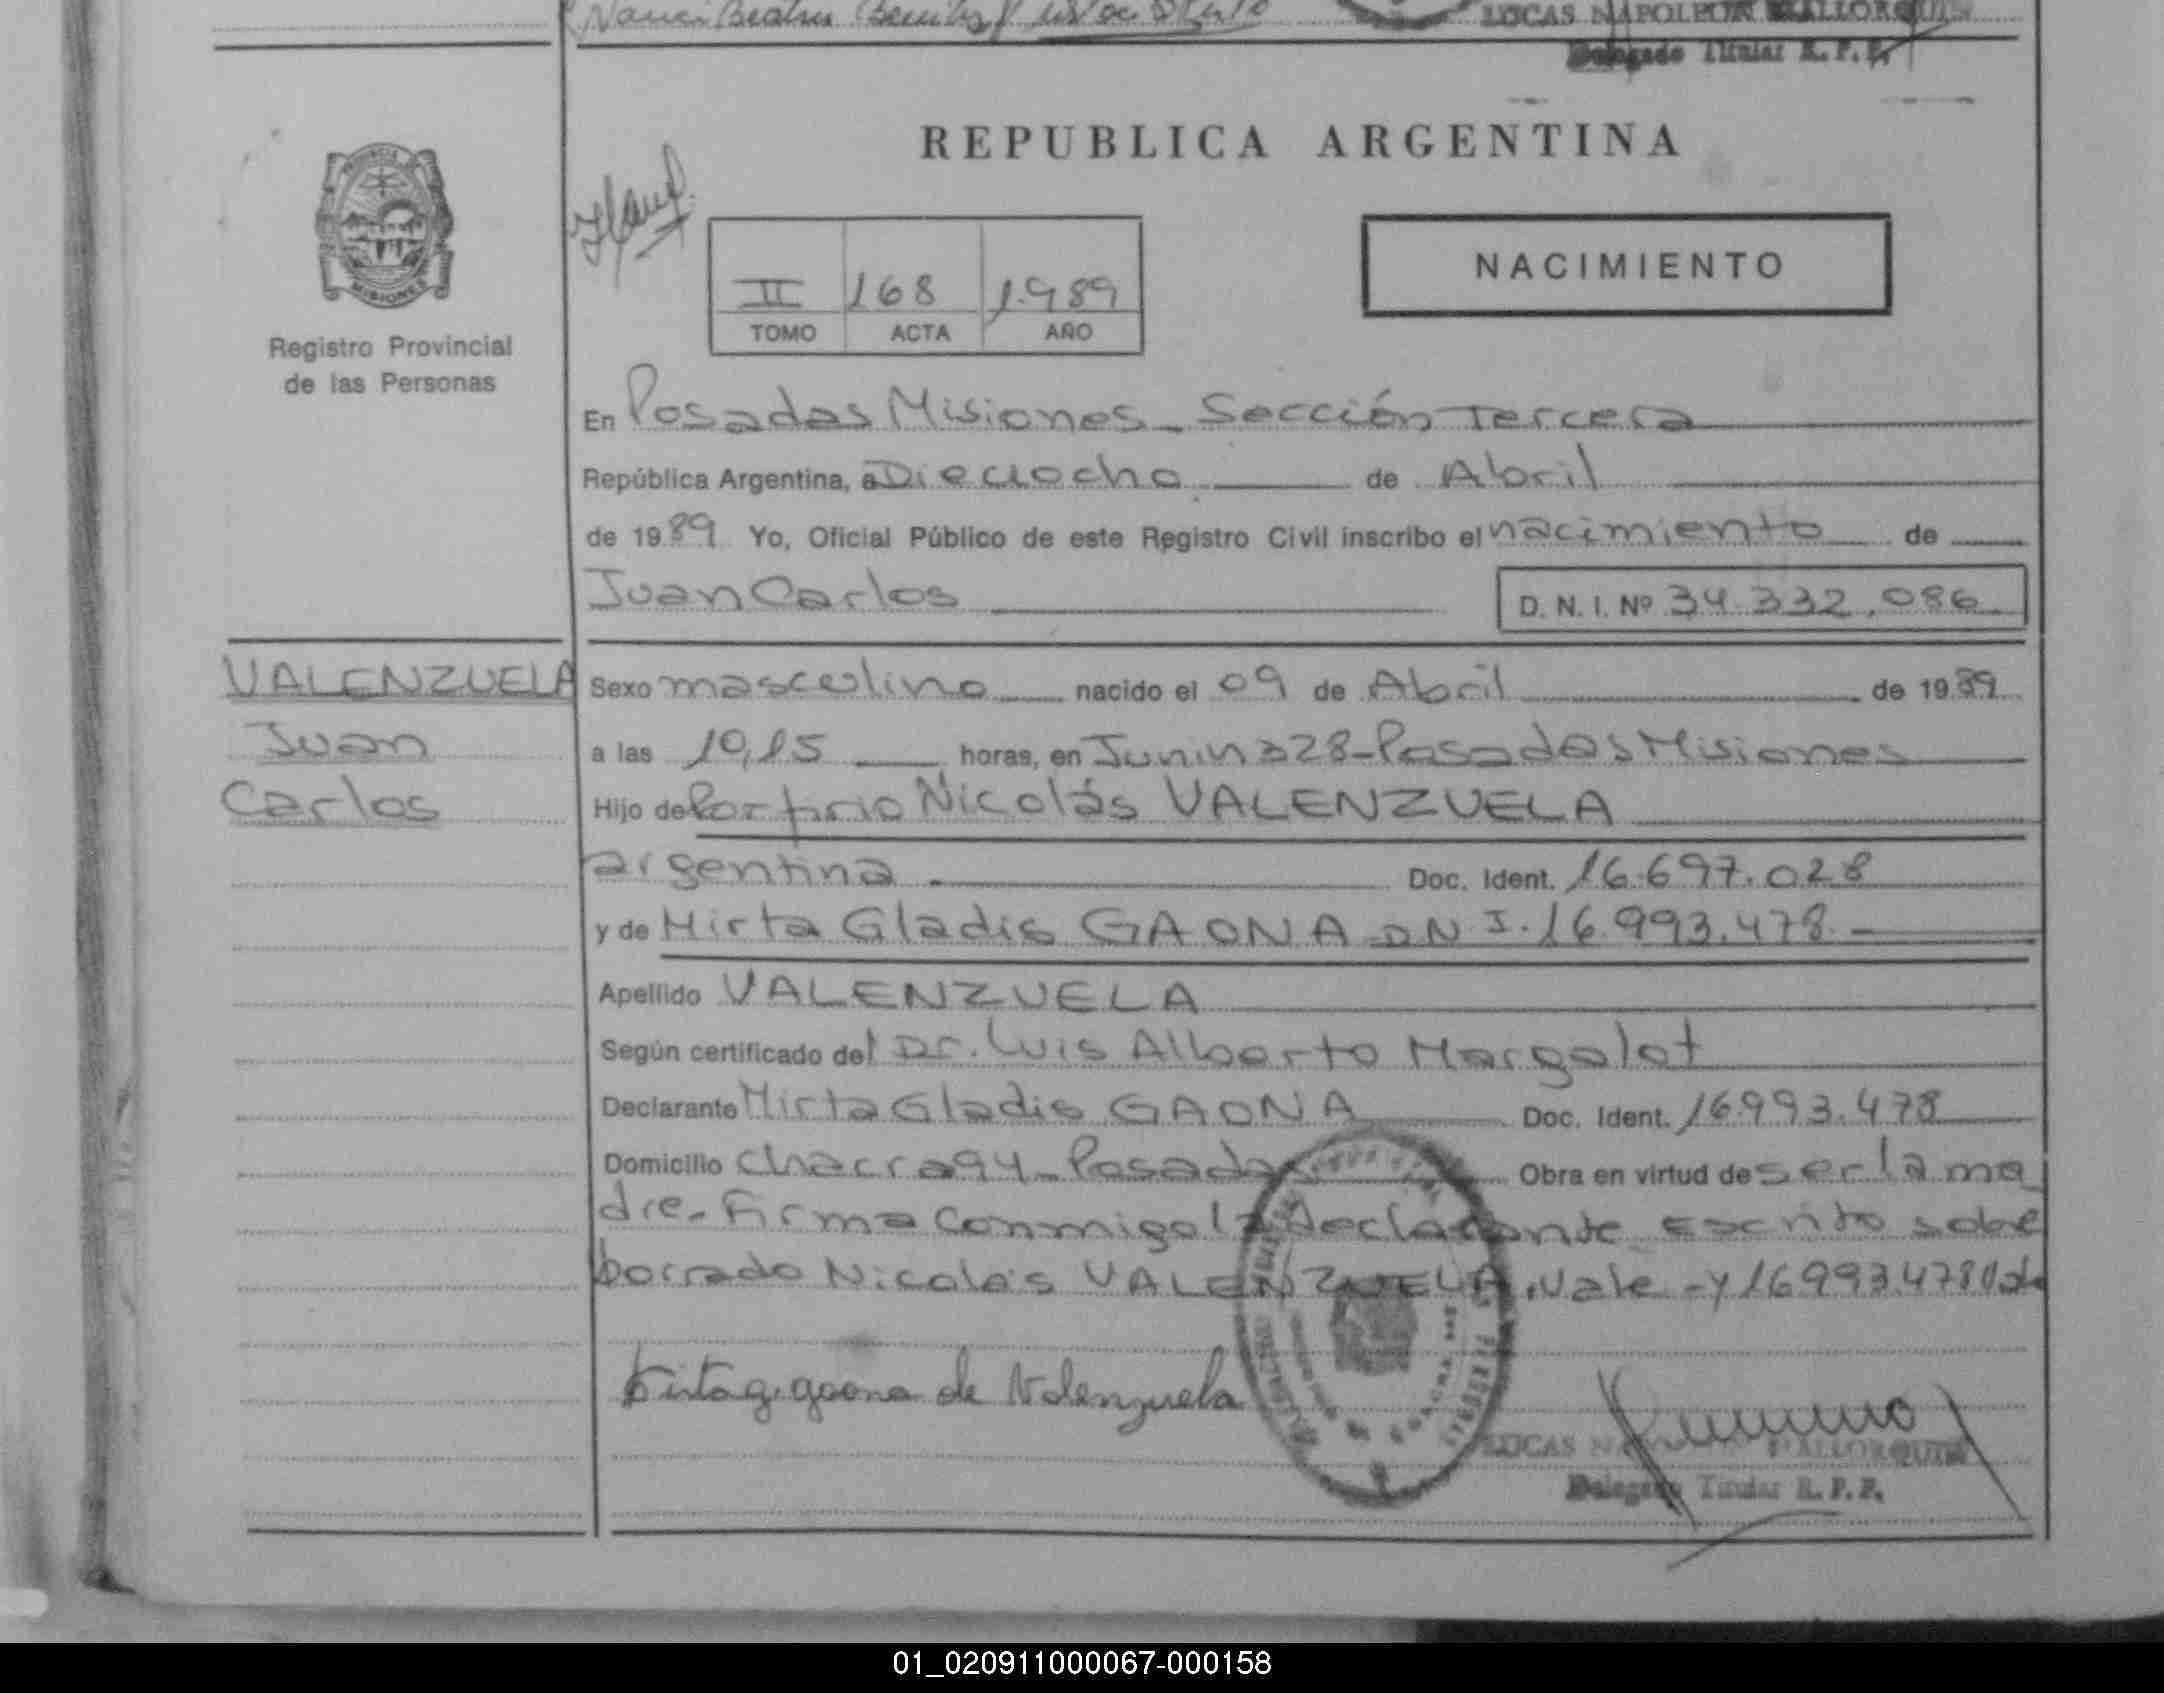 Nanci Beatriz Benitez
LUCAS NAPOLEON MALLORQUIN
Delegado Titular R. P. P.
REPUBLICA ARGENTINA
PROVINCIA
MISIONES
Registro Provincial
de las Personas
II 168 1.989
TOMO ACTA AÑO
NACIMIENTO
En Posadas Misiones - Sección Tercera
República Argentina, a Dieciocho de Abril
de 1989 Yo, Oficial Público de este Registro Civil inscribo el nacimiento de
Juan Carlos D. N. I. Nº 34.332.086
VALENZUELA
Juan
Carlos
Sexo masculino nacido el 09 de Abril de 1989
a las 10,15 horas, en Junin 328 - Posadas Misiones
Hijo de Porfirio Nicolás VALENZUELA
argentina Doc. Ident. 16.697.028
y de Mirta Gladis GAONA D N I. 16.993.478. -
Apellido VALENZUELA
Según certificado del Dr. Luis Alberto Margalot
Declarante Mirta Gladis GAONA Doc. Ident. 16.993.478
Domicilio Chacra 94 - Posadas Obra en virtud de ser la ma
dre. Firma conmigo la declarante Escrito sobre
borrado Nicolás VALENZUELA. Vale - y 16.993.478 Vale
Mirta G. gaona de Valenzuela
LUCAS NAPOLEON MALLORQUIN
Delegado Titular R. P. P.
01_020911000067-000158